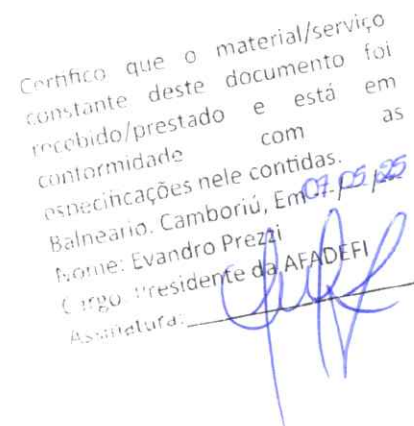 Certifico que o material/serviço
constante deste documento foi
recebido/prestado e está em
conformidade com as
especificações nele contidas.
Balneário. Camboriú, Em 07/05/25
Nome: Evandro Prezzi
Cargo: Presidente da AFADEFI
Assinatura: